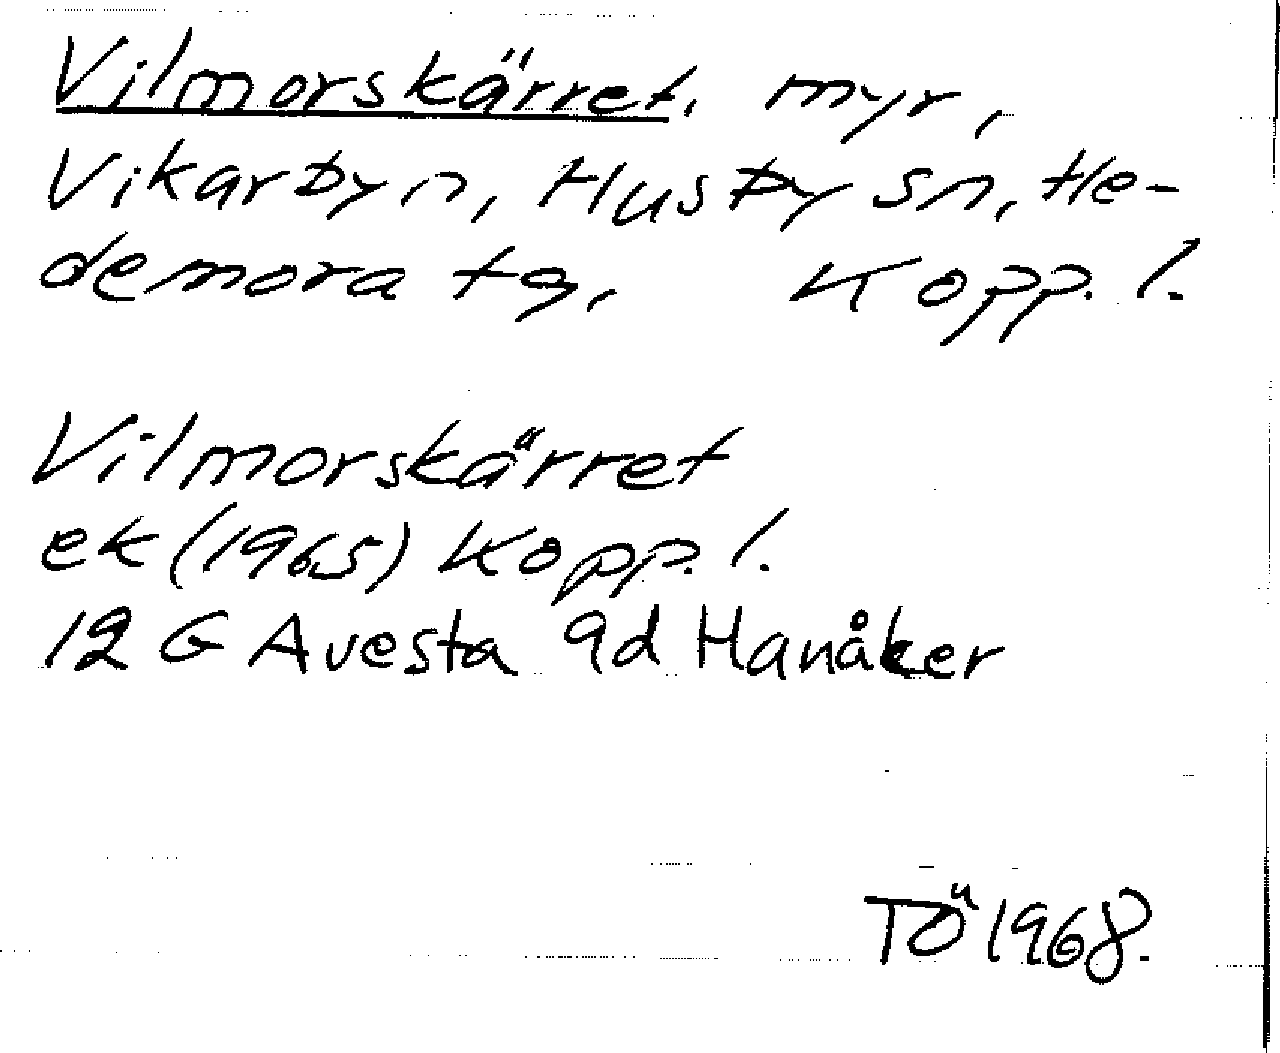 Vilmorskärret, myr,
Vikarbyn, Husby sn, He-
demora tg, Kopp. l.
Vilmorskärret
ek (1965) Kopp. l.
12 G Avesta 9d Hanåker
TÖ 1968.